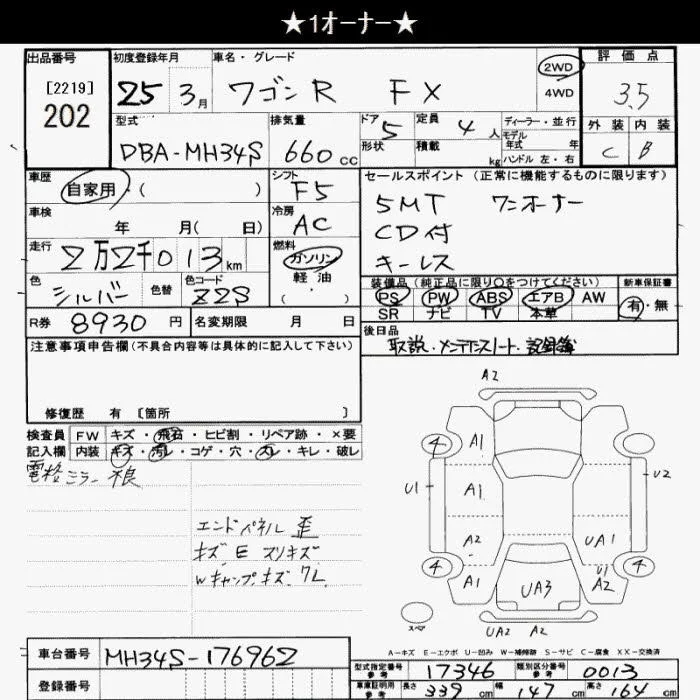 ★1オーナー★
出品番号 初度登録年月 車名・グレード 評価点
[2219] 25 3月 ワゴンR FX 2WD 4WD 3.5
202
型式 排気量 ドア 5 定員 4人 ディーラー・並行 外装 内装
DBA-MH34S 660cc 形状 積載 kg モデル年式 年式 C B
ハンドル 左・右
車歴 シフト セールスポイント(正常に機能するものに限ります)
自家用・( ) F5 5MT ワンオーナー
車検 年 月( 日) 冷房 AC CD付
走行 2万2千013km 燃料 ガソリン キーレス
軽油 ( )
色 シルバー 色替 色コード Z2S 装備品(純正品に限り○をつけてください) 新車保証書
PS PW ABS エアB AW 有・無
SR ナビ TV 本革
R券 8930円 名変期限 月 日 後日品
取説・メンテナンスノート・記録簿
注意事項申告欄(不具合内容等は具体的に記入して下さい)
修復歴 有 [箇所 ]
検査員 FW キズ・飛石・ヒビ割・リペア跡・×要
記入欄 内装 キズ・汚レ・コゲ・穴・スレ・キレ・破レ
電格ミラー
エンドパネル歪
キズ E スリキズ
Wキャップキズ
A2
4 A1
U1 A1 U2
A2 UA1
4 A1 UA3 U1 A2 4
スペア UA2 A2
A-キズ E-エクボ U-凹み W-補修跡 S-サビ C-腐食 XX-交換済
車台番号 MH34S-176962
登録番号
型式指定番号 参考 17346 類別区分番号 参考 0013
車庫証明用 参考 長さ 339cm 幅 147cm 高さ 164cm